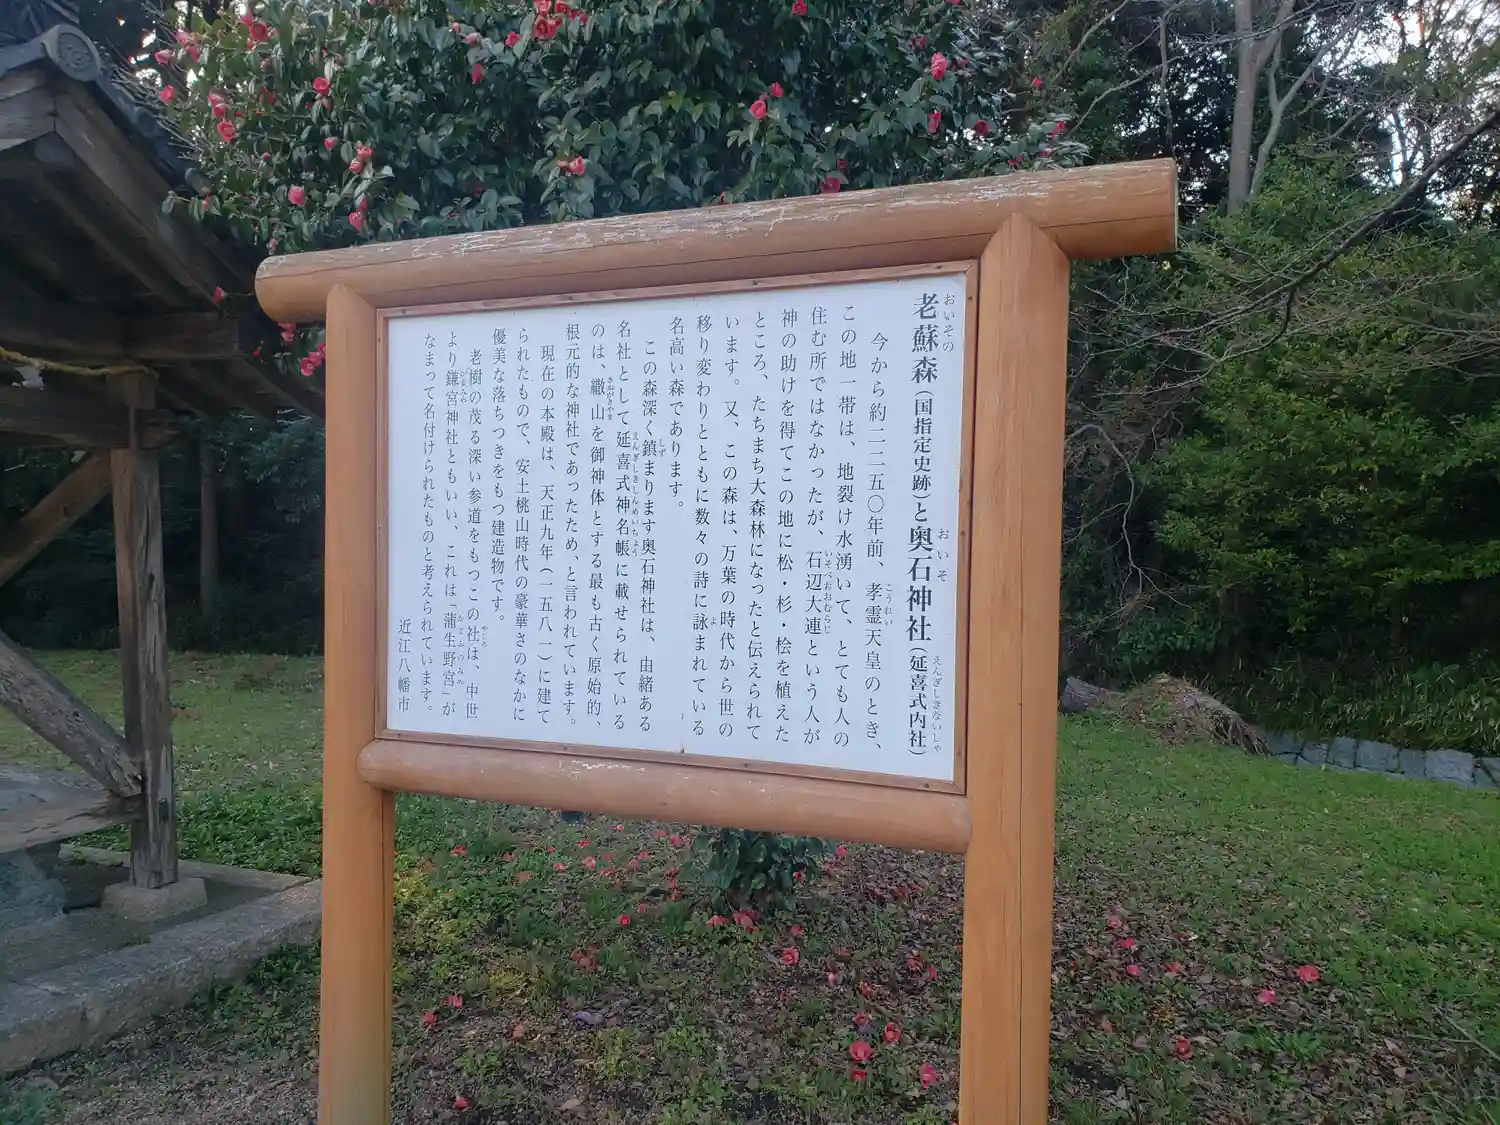 老蘇森(国指定史跡)と奥石神社(延喜式内社)
今から約二二五〇年前、孝霊天皇のとき、
この地一帯は、地裂け水湧いて、とても人の
住む所ではなかったが、石辺大連という人が
神の助けを得てこの地に松・杉・桧を植えた
ところ、たちまち大森林になったと伝えられて
います。又、この森は、万葉の時代から世の
移り変わりとともに数々の詩に詠まれている
名高い森であります。
この森深く鎮まります奥石神社は、由緒ある
名社として延喜式神名帳に載せられている
のは、繖山を御神体とする最も古く原始的、
根元的な神社であったため、と言われています。
現在の本殿は、天正九年(一五八一)に建て
られたもので、安土桃山時代の豪華さのなかに
優美な落ちつきをもつ建造物です。
老樹の茂る深い参道をもつこの社は、中世
より鎌宮神社ともいい、これは「蒲生野宮」が
なまって名付けられたものと考えられています。
近江八幡市